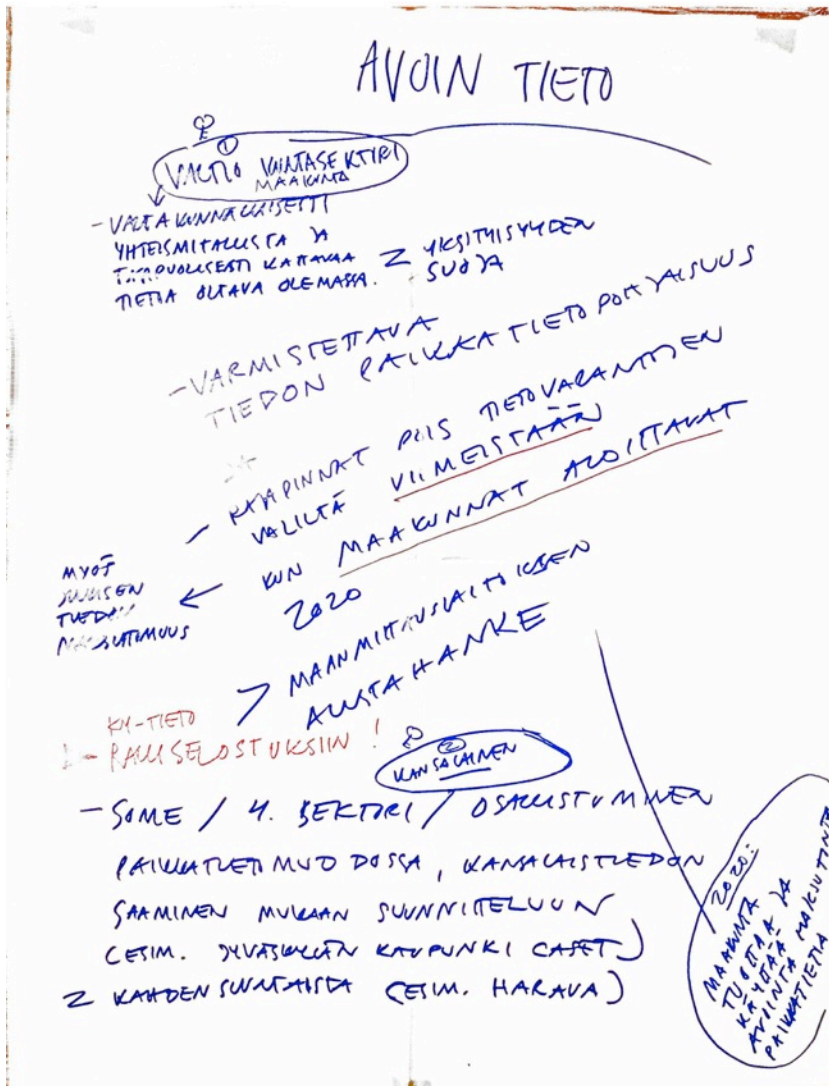 AVOIN TIETO
①
VALTIO KUNTASEKTORI
MAAKUNTA
- VALTAKUNNALLISESTI
YHTEISMITALLISTA JA
KATTAVAA
TIETOA OLTAVA OLEMASSA.
YKSITYISYYDEN
SUOJA
- VARMISTETTAVA
TIEDON PAIKKATIETOPOHJAISUUS
- RAJAPINNAT POIS TIETOVARANTOJEN
VÄLILTÄ VIIMEISTÄÄN
KUN MAAKUNNAT ALOITTAVAT
2020
←
MYÖS
TIEDON
> MAANMITTAUSLAITOKSEN
ALUSTAHANKE
KM-TIETO
!
②
KANSALAINEN
- SOME / 4. SEKTORI / OSALLISTUMINEN
PAIKKATIETOMUODOSSA, KANSALAISTIEDON
SAAMINEN MUKAAN SUUNNITTELUUN
(ESIM. JYVÄSKYLÄN KAUPUNKI CASET)
KAHDENSUUNTAISTA (ESIM. HARAVA)
2020:
MAAKUNTA
TUOTTAA JA
KÄYTTÄÄ
AVOINTA MAKSUTONTA
PAIKKATIETOA